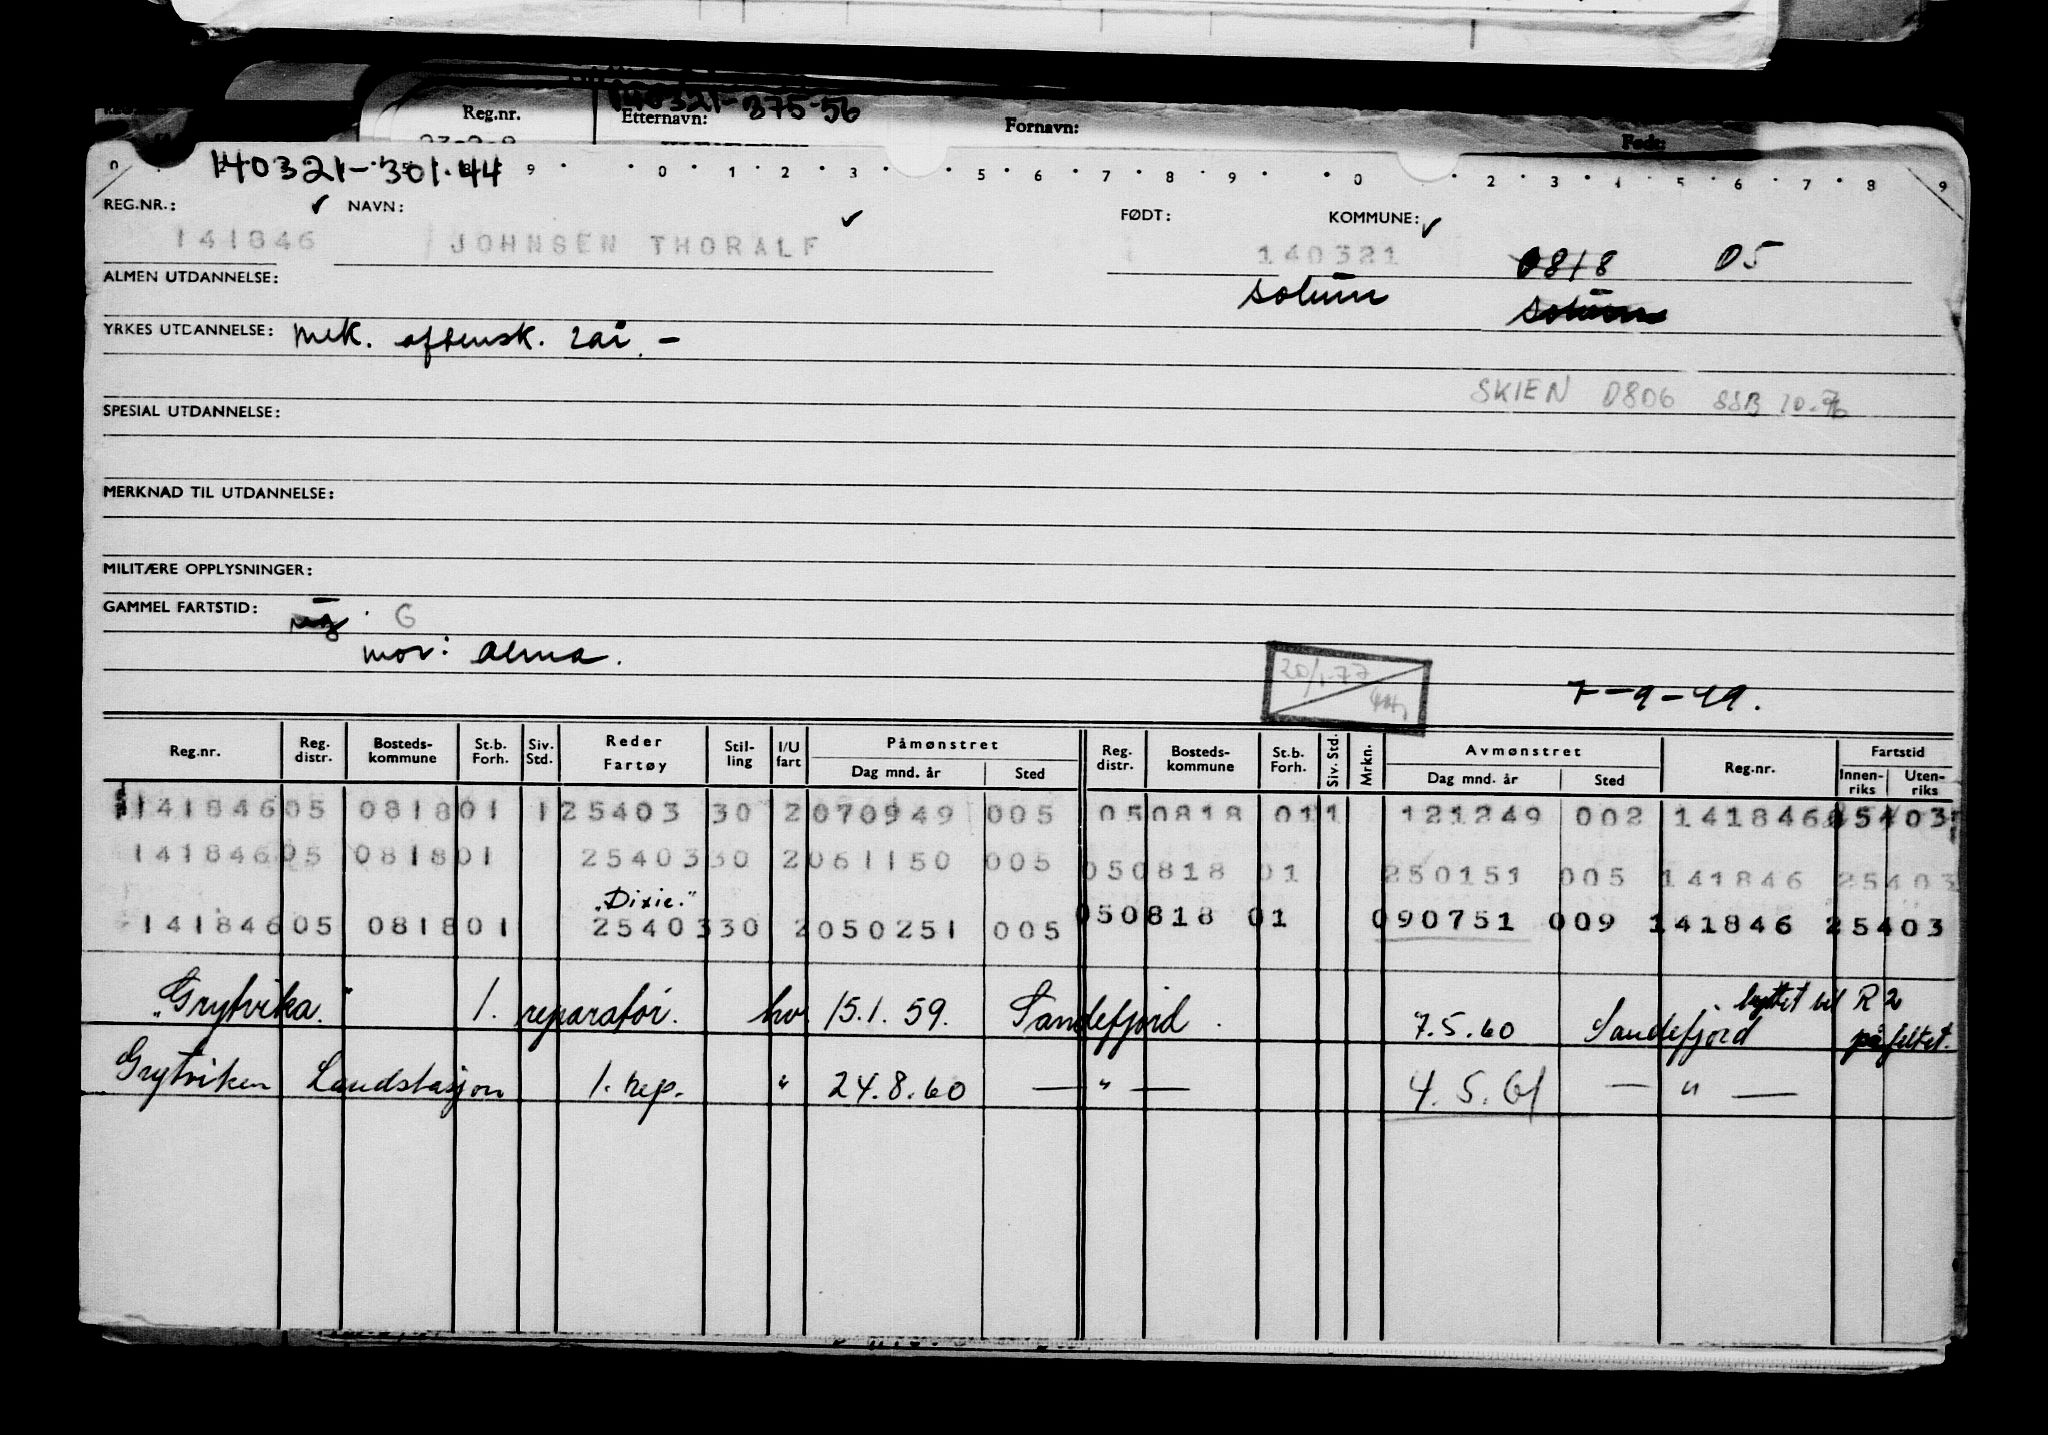 140321-375-56
Reg.nr. Etternavn: Fornavn: Født:
140321-301.44
9 0 1 2 3 5 6 7 8 9 0 2 3 4 5 6 7 8 9
REG.NR.: NAVN: FØDT: KOMMUNE:
141846 JOHNSEN THORALF 140321 0818 05
Solum Solum
ALMEN UTDANNELSE:
YRKES UTDANNELSE: mek. aftensk. 2 år. -
SKIEN 0806 SSB 10.76
SPESIAL UTDANNELSE:
MERKNAD TIL UTDANNELSE:
MILITÆRE OPPLYSNINGER:
GAMMEL FARTSTID: G
mor: Alma.
20/1-77
7-9-49.
Reg.nr. Reg. distr. Bosteds-kommune St.b. Forh. Siv. Std. Reder Fartøy Stil-ling I/U fart Påmønstret Dag mnd. år Sted Reg. distr. Bosteds-kommune St.b. Forh. Siv. Std. Mrkn. Avmønstret Dag mnd. år Sted Reg.nr. Fartstid Innen-riks Uten-riks
141846 05 0818 01 1 25403 30 2 070949 005 05 0818 01 1 121249 002 141846 25403
141846 05 0818 01 25403 30 2 061150 005 05 0818 01 250151 005 141846 25403
"Dixie."
141846 05 0818 01 25403 30 2 050251 005 05 0818 01 090751 009 141846 25403
"Grytvika." 1. reparatör. hv. 15.1.59. Sandefjord. 7.5.60 Sandefjord byttet til R 2 på feltet.
Grytviken Landstasjon 1. rep. " 24.8.60 — " — 4.5.61 — " —